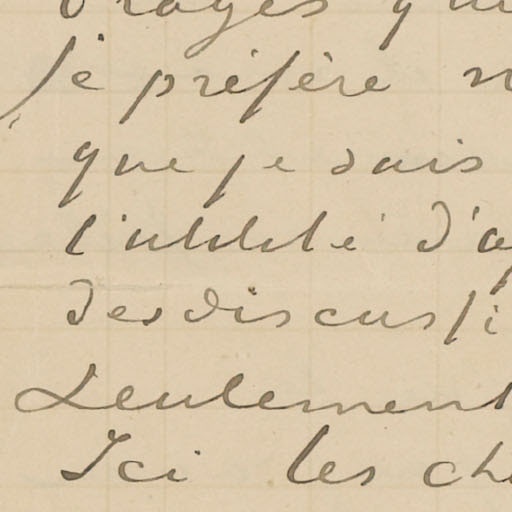 orages
Je préfère
que je sais
l'utilité d'
des discussi
Seulement
Ici les ch